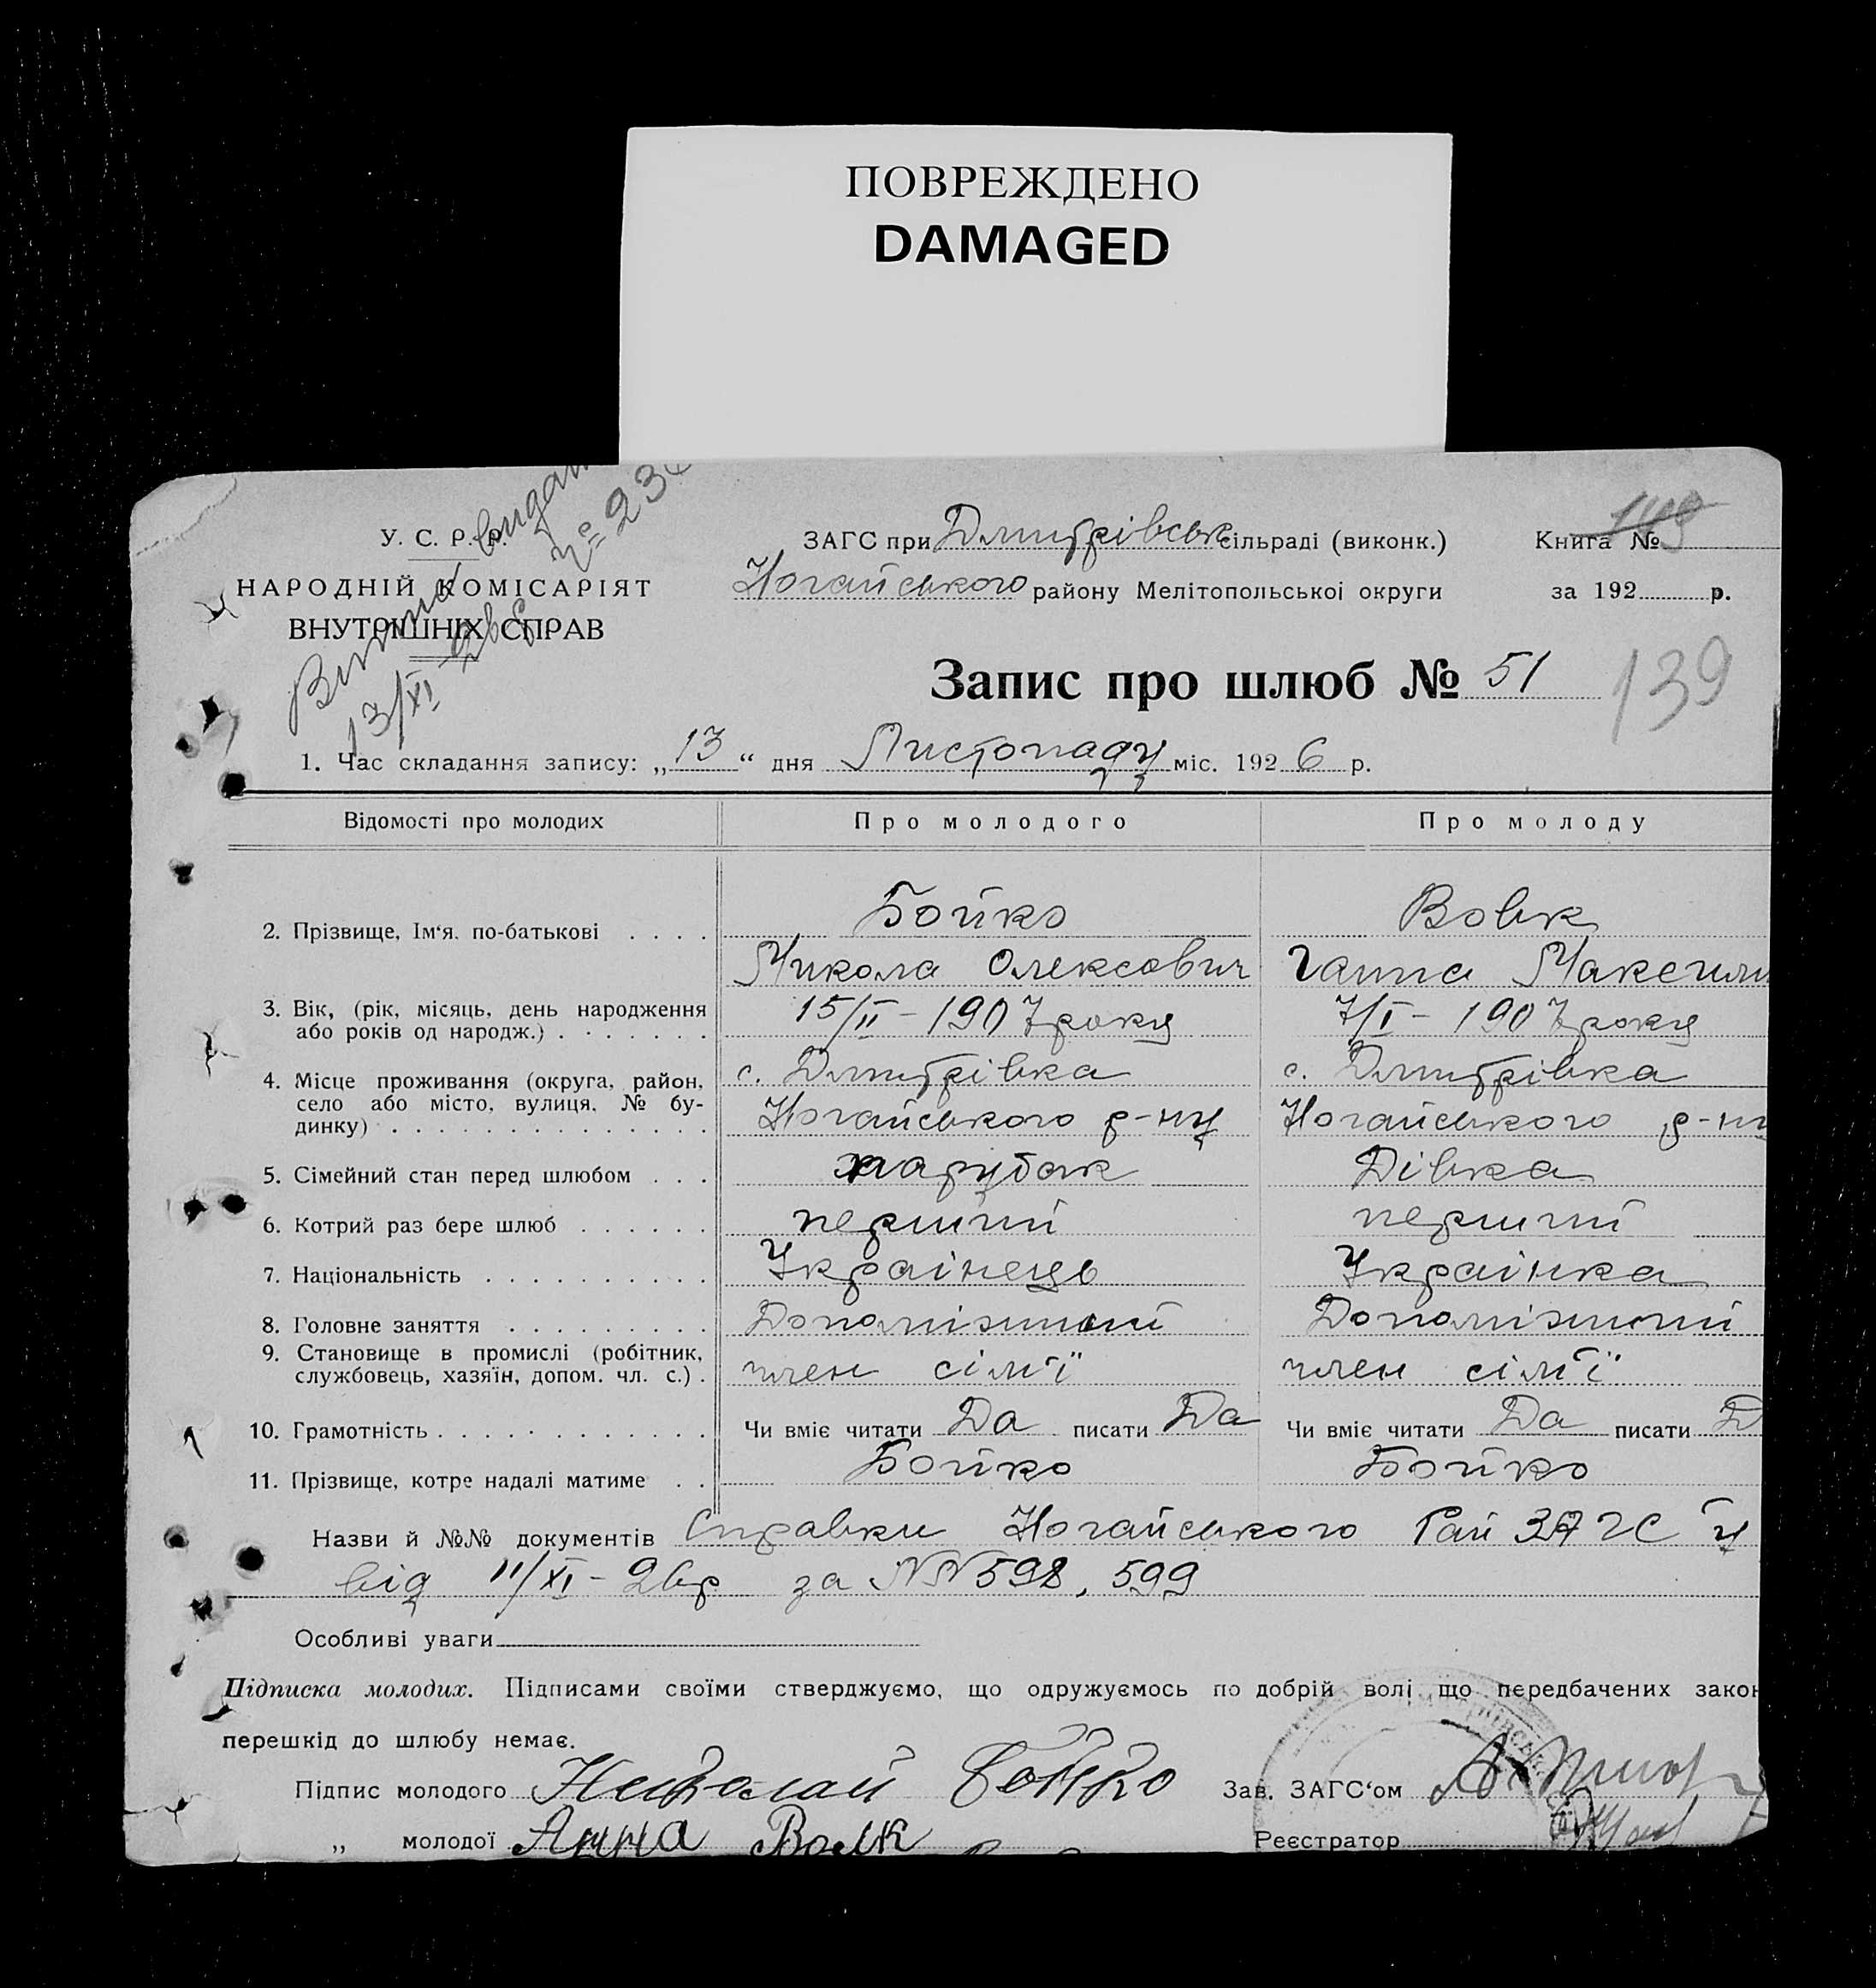 ПОВРЕЖДЕНО
DAMAGED
У. С. Р. Р.
НАРОДНІЙ КОМІСАРІЯТ
ВНУТРІШНІХ СПРАВ
13/XI
ЗАГС при Дмитрівськ сільраді (виконк.)
Ногайського району Мелітопольської округи
Книга №
за 192 р.
Запис про шлюб № 51
139
1. Час складання запису: „13“ дня Листопаду міс. 1926 р.
Відомості про молодих Про молодого Про молоду
2. Прізвище, Ім‘я, по-батькові . . . . Бойко Вовк
Микола Олексович Ганна Максими
3. Вік, (рік, місяць, день народження або років од народж.) . . . . . . 15/II – 1907 року 7/I – 1907 року
4. Місце проживання (округа, район, село або місто, вулиця, № будинку) . . . . с. Дмитрівка с. Дмитрівка
Ногайського р-ну Ногайського р-ну
5. Сімейний стан перед шлюбом . . . парубок Дівка
6. Котрий раз бере шлюб . . . . . . перший перший
7. Національність . . . . . . . . . . Українець Українка
8. Головне заняття . . . . . . . . . Допоміжний Допоміжний
9. Становище в промислі (робітник, службовець, хазяїн, допом. чл. с.) . член сім'ї член сім'ї
10. Грамотність . . . . . . . . . . . . Чи вміє читати Да писати Да Чи вміє читати Да писати Д
11. Прізвище, котре надалі матиме . . Бойко Бойко
Назви й №№ документів Справки Ногайського Рай ЗАГС'у
від 11/XI – 26р за NN 598, 599
Особливі уваги
Підписка молодих. Підписами своїми стверджуємо, що одружуємось по добрій волі що передбачених закон
перешкід до шлюбу немає.
Підпис молодого Николай Бойко Зав. ЗАГС‘ом
„ молодої Анна Волк Реєстратор